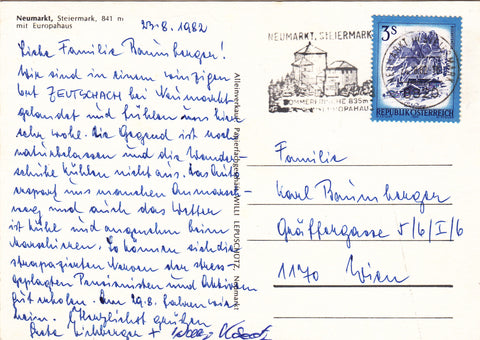 Neumarkt, Steiermark, 841 m
mit Europahaus
23.8.1982
Liebe Familie Baumberger!
Wir sind in einem winzigen
Ort ZEUTSCHACH bei Neumarkt
gelandet und fühlen uns hier
sehr wohl. Die Gegend ist noch
naturbelassen und die Wander-
schuhe kühlen nicht aus. Das Auto
erspart uns manchen Anmarsch-
weg und auch das Wetter
ist kühl und angenehm beim
Marschieren. So können sich die
strapazierten Nerven der stress-
geplagten Pensionisten und Aktiven
gut erholen. Am 29.8. fahren wir
heim. Herzlichst grüßen
+
Alleinverkauf: Papierfachgeschäft WILLI LEPUSCHÜTZ, Neumarkt
NEUMARKT, STEIERMARK
SOMMERFRISCHE 835m
EUROPAHAUS
3S
REPUBLIK ÖSTERREICH
Familie
Karl Baumberger
Gräffergasse 5/6/I/6
1170 Wien